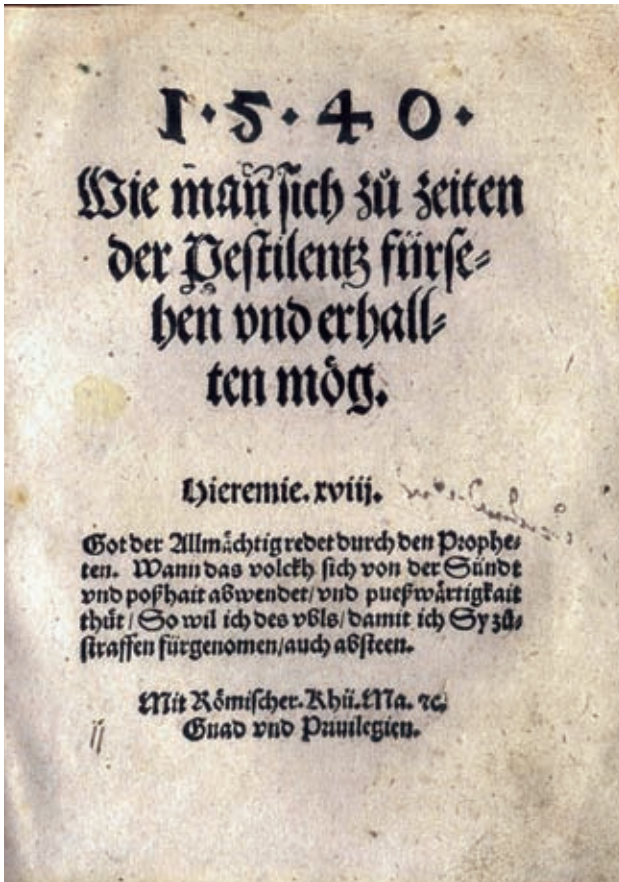 1·5·4·0·
Wie man̄ sich zů zeiten
der Pestilentz fürse⸗
hen̄ vnd erhall⸗
ten mög.
Hieremie. xviij.
Got der Allmächtig redet durch den Prophe⸗
ten. Wann das volckh sich von der Sündt
vnd poßhait abwendet/ vnd pueßwärtigkait
thůt/ So wil ich des vbls/ damit ich Sy zů⸗
straffen fürgenomen/ auch absteen.
Mit Römischer. Khü. Ma. ꝛc.
Gnad vnd Priuilegien.